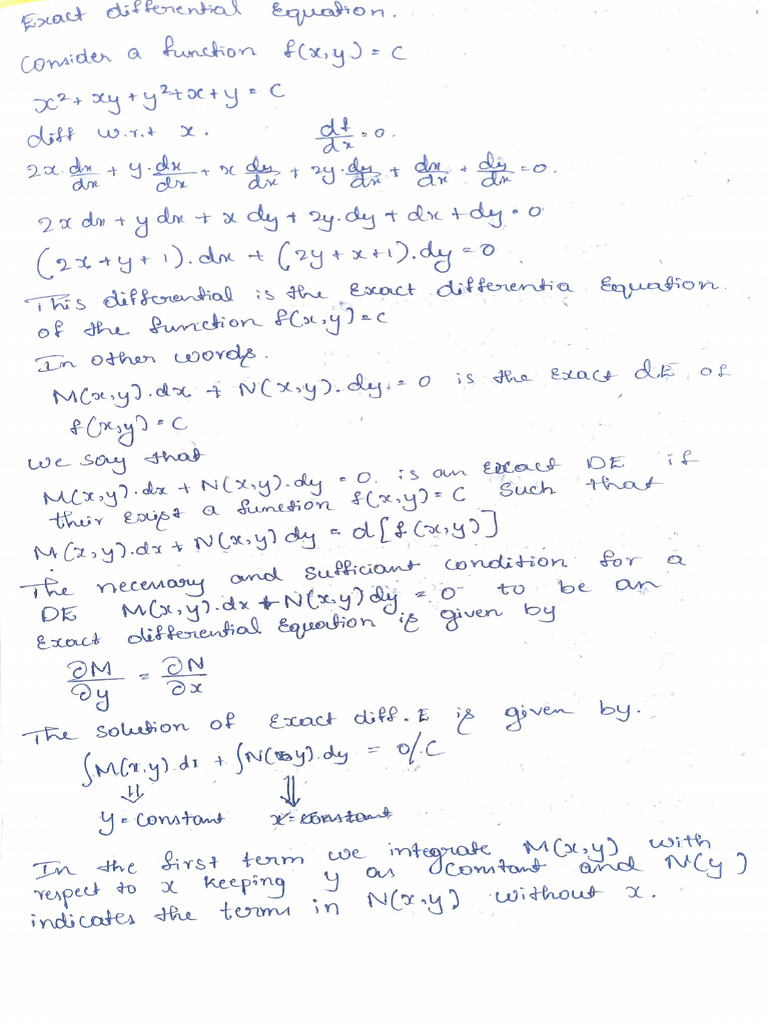 Exact differential Equation.
Consider a function f(x,y) = C
x² + xy + y² + x + y = C
diff w.r.t x. df/dx = 0.
2x.dx/dx + y.dx/dx + x dy/dx + 2y.dy/dx + dx/dx + dy/dx = 0.
2x dx + y dx + x dy + 2y.dy + dx + dy = 0
(2x + y + 1).dx + (2y + x + 1).dy = 0
This differential is the Exact differentia Equation
of the function f(x,y) = c
In other words.
M(x,y).dx + N(x,y).dy = 0 is the Exact dE of
f(x,y) = C
we say that
M(x,y).dx + N(x,y).dy = 0. is an Exact DE if
their exist a function f(x,y) = C such that
M(x,y).dx + N(x,y) dy = d[f(x,y)]
The necessary and sufficiant condition for a
DE M(x,y).dx + N(x,y) dy = 0 to be an
Exact differential Equation is given by
∂M/∂y = ∂N/∂x
The solution of Exact diff. E is given by.
∫M(x,y).dx + ∫N(y).dy = 0/C
⇓ ⇓
y = constant x = constant
In the first term we integrate M(x,y) with
respect to x keeping y as constant and N(y)
indicates the terms in N(x,y) without x.